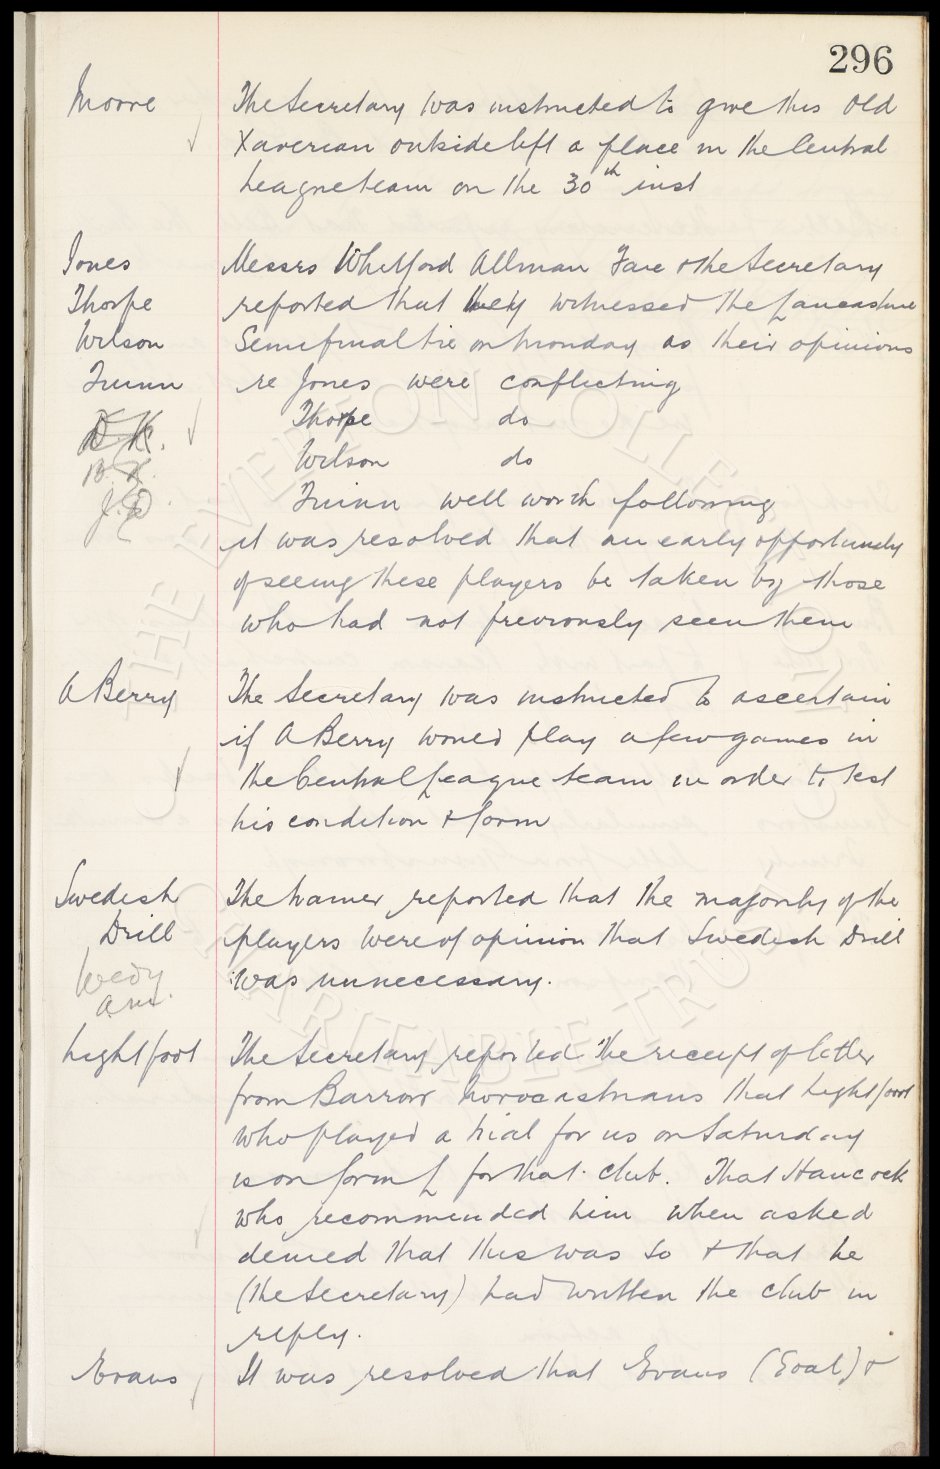 296
Moore The Secretary was instructed to give this old
Xaverian outside left a place in the Central
League team on the 30th inst
Jones Messrs Whitford Allman Fare & the Secretary
Thorpe reported that they witnessed the Lancashire
Wilson Semi final tie on Monday as their opinions
Quinn re Jones were conflicting
Thorpe do
Wilson do
Quinn well worth following
it was resolved that an early opportunity
of seeing these players be taken by those
who had not previously seen them
A Berry The Secretary was instructed to ascertain
if A Berry would play a few games in
the Central League team in order to test
his condition & form
Swedish The trainer reported that the majority of the
Drill players were of opinion that Swedish Drill
was unnecessary.
Lightfoot The Secretary reported the receipt of letter
from Barrow Novocastrians that Lightfoot
who played a trial for us on Saturday
is on form L for that club. That Hancock
who recommended him when asked
denied that this was so & that he
(the Secretary) had written the club in
reply.
Evans It was resolved that Evans (Goal) &
THE EVERTON COLLECTION
CHARITABLE TRUST